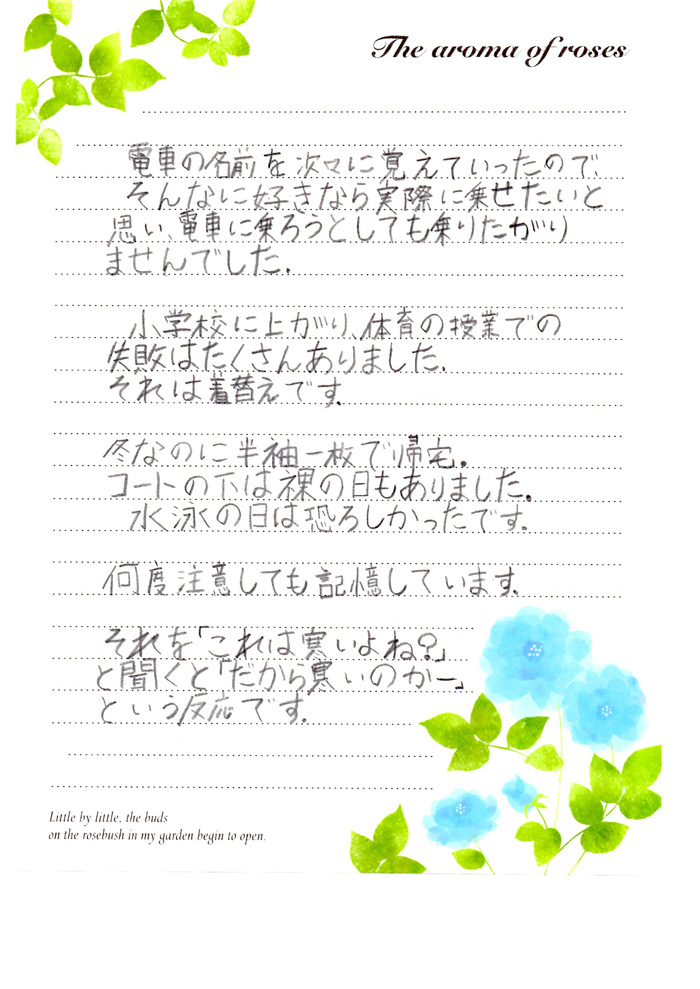 The aroma of roses
電車の名前を次々に覚えていったので、
そんなに好きなら実際に乗せたいと
思い、電車に乗ろうとしても乗りたがり
ませんでした。
小学校に上がり、体育の授業での
失敗はたくさんありました。
それは着替えです。
冬なのに半袖一枚で帰宅。
コートの下は裸の日もありました。
水泳の日は恐ろしかったです。
何度注意しても記憶しています。
それを「これは寒いよね?」
と聞くと「だから寒いのかー」
という反応です。
Little by little, the buds
on the rosebush in my garden begin to open.